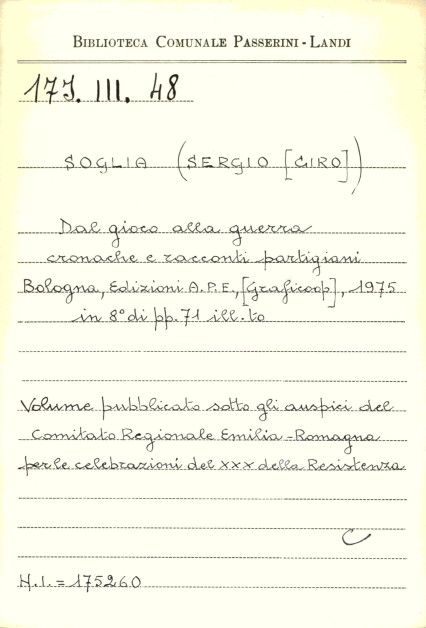 BIBLIOTECA COMUNALE PASSERINI - LANDI
17J. III. 48
SOGLIA (SERGIO [CIRO])
Dal gioco alla guerra
cronache e racconti partigiani
Bologna, Edizioni A.P.E., [Graficoop], 1975
in 8° di pp. 71 ill.to
Volume pubblicato sotto gli auspici del
Comitato Regionale Emilia-Romagna
per le celebrazioni del XXX della Resistenza
C
N.I. = 175260